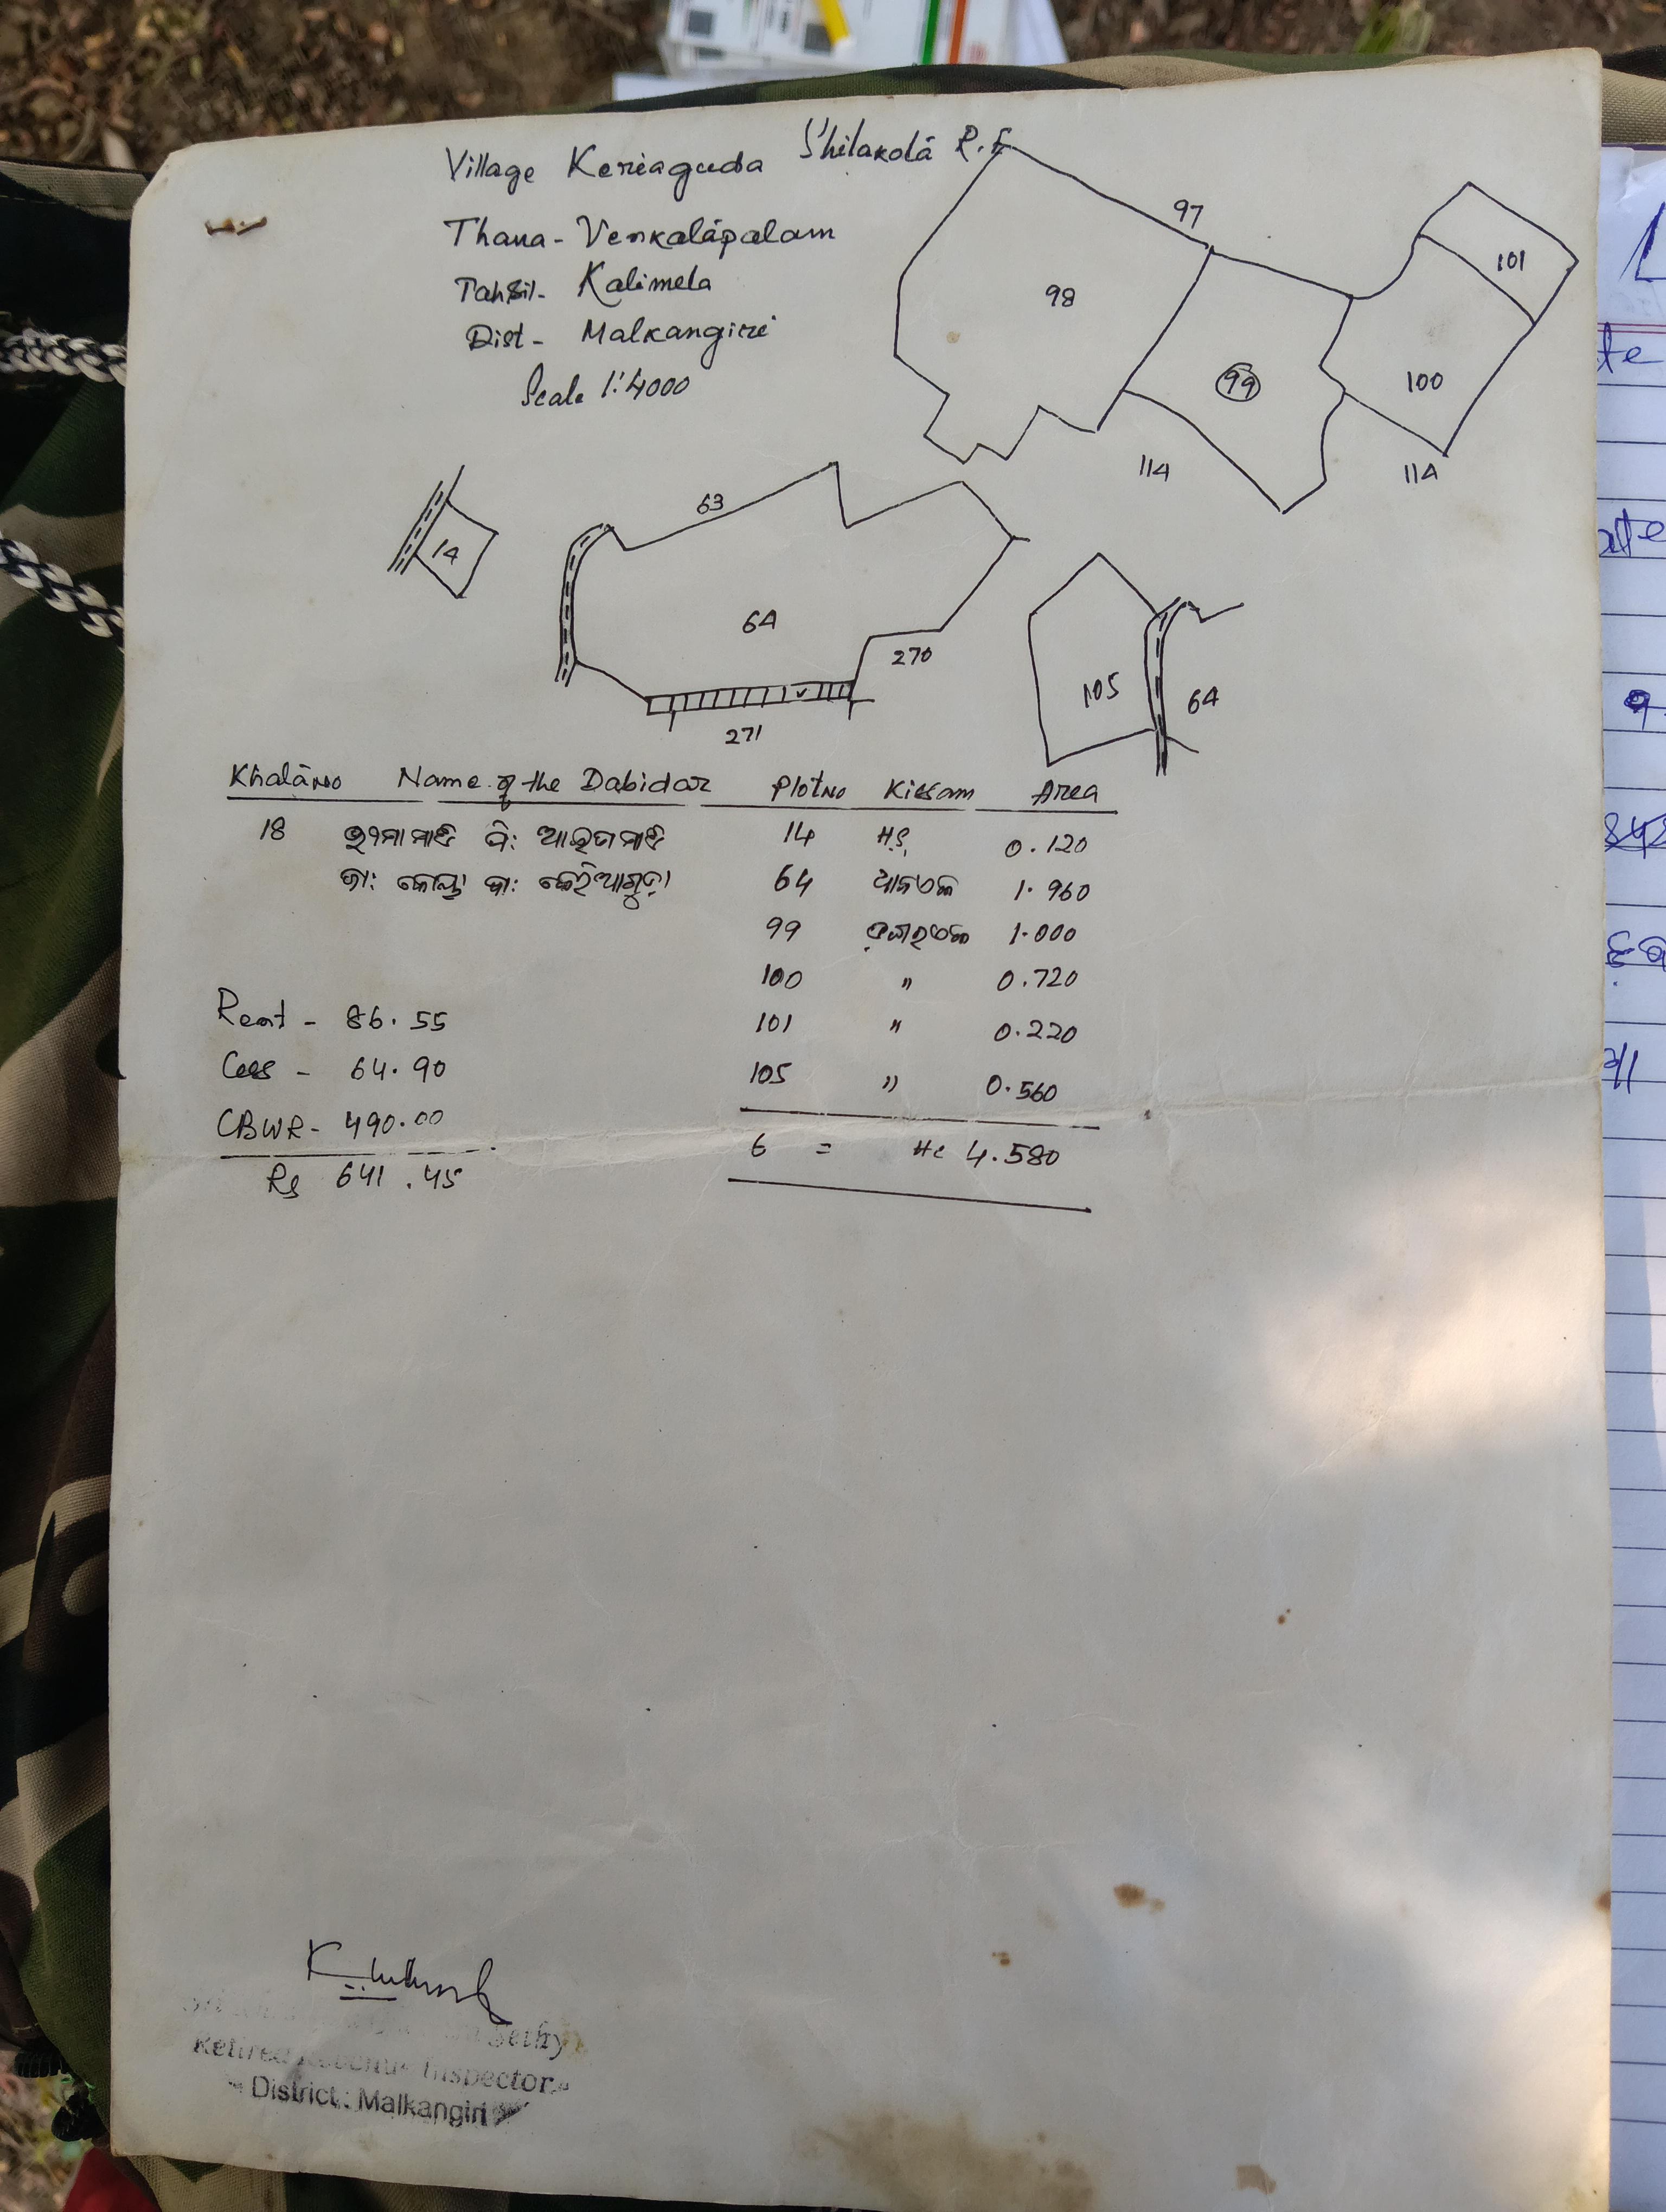 Village Keriaguda Shilakota R.F
Thana - Venkatapalam
Tahsil - Kalimela
Dist - Malkangiri
Scale 1:4000
97
98
99
101
100
114
114
14
63
64
270
271
105
64
Khata No Name of the Dabidar Plot No Kissam Area
18 ଭୀମା ମାଡି ପି: ଆଇତା ମାଡି 14 H.S. 0.120
ଜା: କୋୟା ସା: କେରିଆଗୁଡ଼ା 64 1.960
99 1.000
100 " 0.720
Rent - 86.55 101 " 0.220
Cess - 64.90 105 " 0.560
CBWR - 490.00
6 = Hc 4.580
Rs 641.45
Sethy
Retired Revenue Inspector
District: Malkangiri